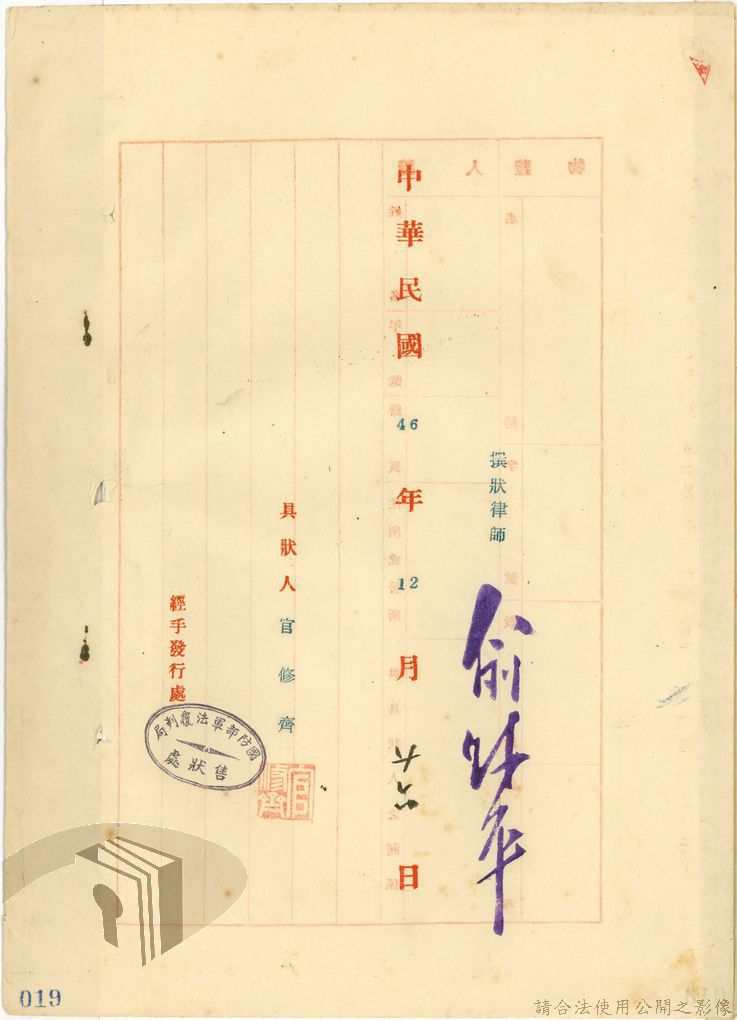 撰狀律師
中華民國46年12月日
具狀人官修齊
經手發行處
國防部軍法覆判局
售狀處
019
請合法使用公開之影像